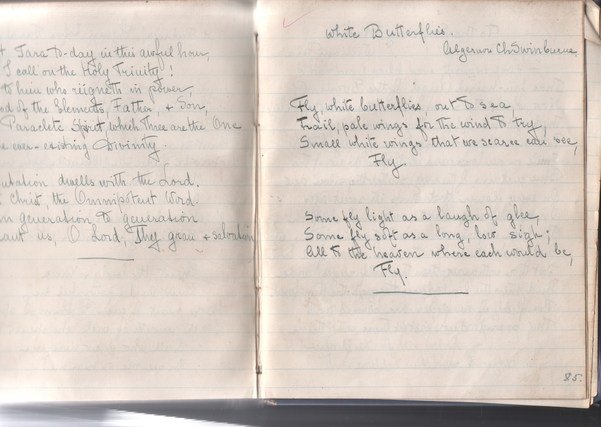 Tara to-day in this awful hour,
I call on the Holy Trinity!
to him who reigneth in power,
of the Elements, Father, & Son,
Paraclete Spirit, which Three are the One
ever-existing Divinity.
dwells with the Lord.
Christ, the Omnipotent Word.
generation to generation
us, O Lord, Thy grace & salvation
White Butterflies.
Algernon Ch Swinburne
Fly, white butterflies, out to sea
Frail, pale wings for the wind to try,
Small white wings that we scarce can see,
Fly.
Some fly light as a laugh of glee,
Some fly soft as a long, low sigh;
All to the heaven where each would be,
Fly.
85.